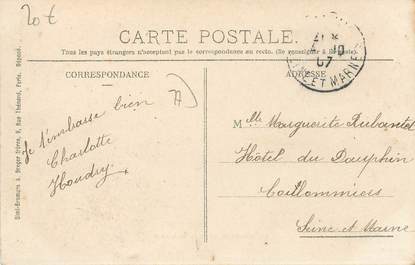 20t
CARTE POSTALE.
Tous les pays étrangers n'acceptent pas la correspondance au recto. (Se renseigner à la Poste).
CORRESPONDANCE
77
ADRESSE
10
07
ET MARNE
Je t'embrasse bien
Charlotte
Houdry
Mlle Marguerite
Hôtel du Dauphin
Coulommiers
Seine et Marne
Simi-Bromure A. Breger frères, 9, Rue Thénard, Paris.